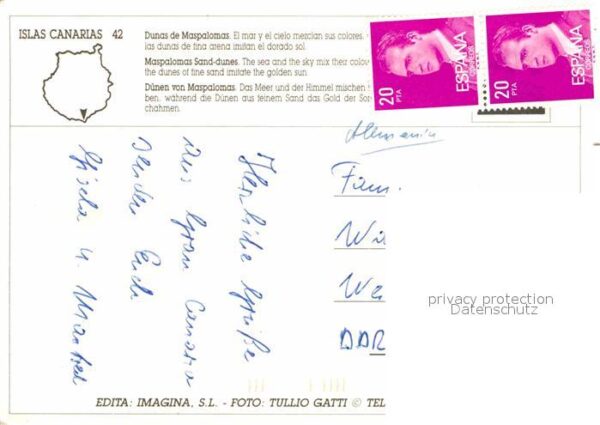 ISLAS CANARIAS 42
Dunas de Maspalomas. El mar y el cielo mercian sus colores,
las dunas de fina arena imitan el dorado sol.
Maspalomas Sand-dunes. The sea and the sky mix their colou
the dunes of fine sand imitate the golden sun.
Dünen von Maspalomas. Das Meer und der Himmel mischen
ben, während die Dünen aus feinem Sand das Gold der Son
chahmen.
20 PTA
ESPAÑA
CORREOS
20 PTA
ESPAÑA
CORREOS
Alemania
Fam.
Wi
We
DDR
Herzliche Grüße
aus Gran Canaria
senden Euch
Gisela u. Manfred
privacy protection
Datenschutz
EDITA: IMAGINA, S.L. - FOTO: TULLIO GATTI © TEL